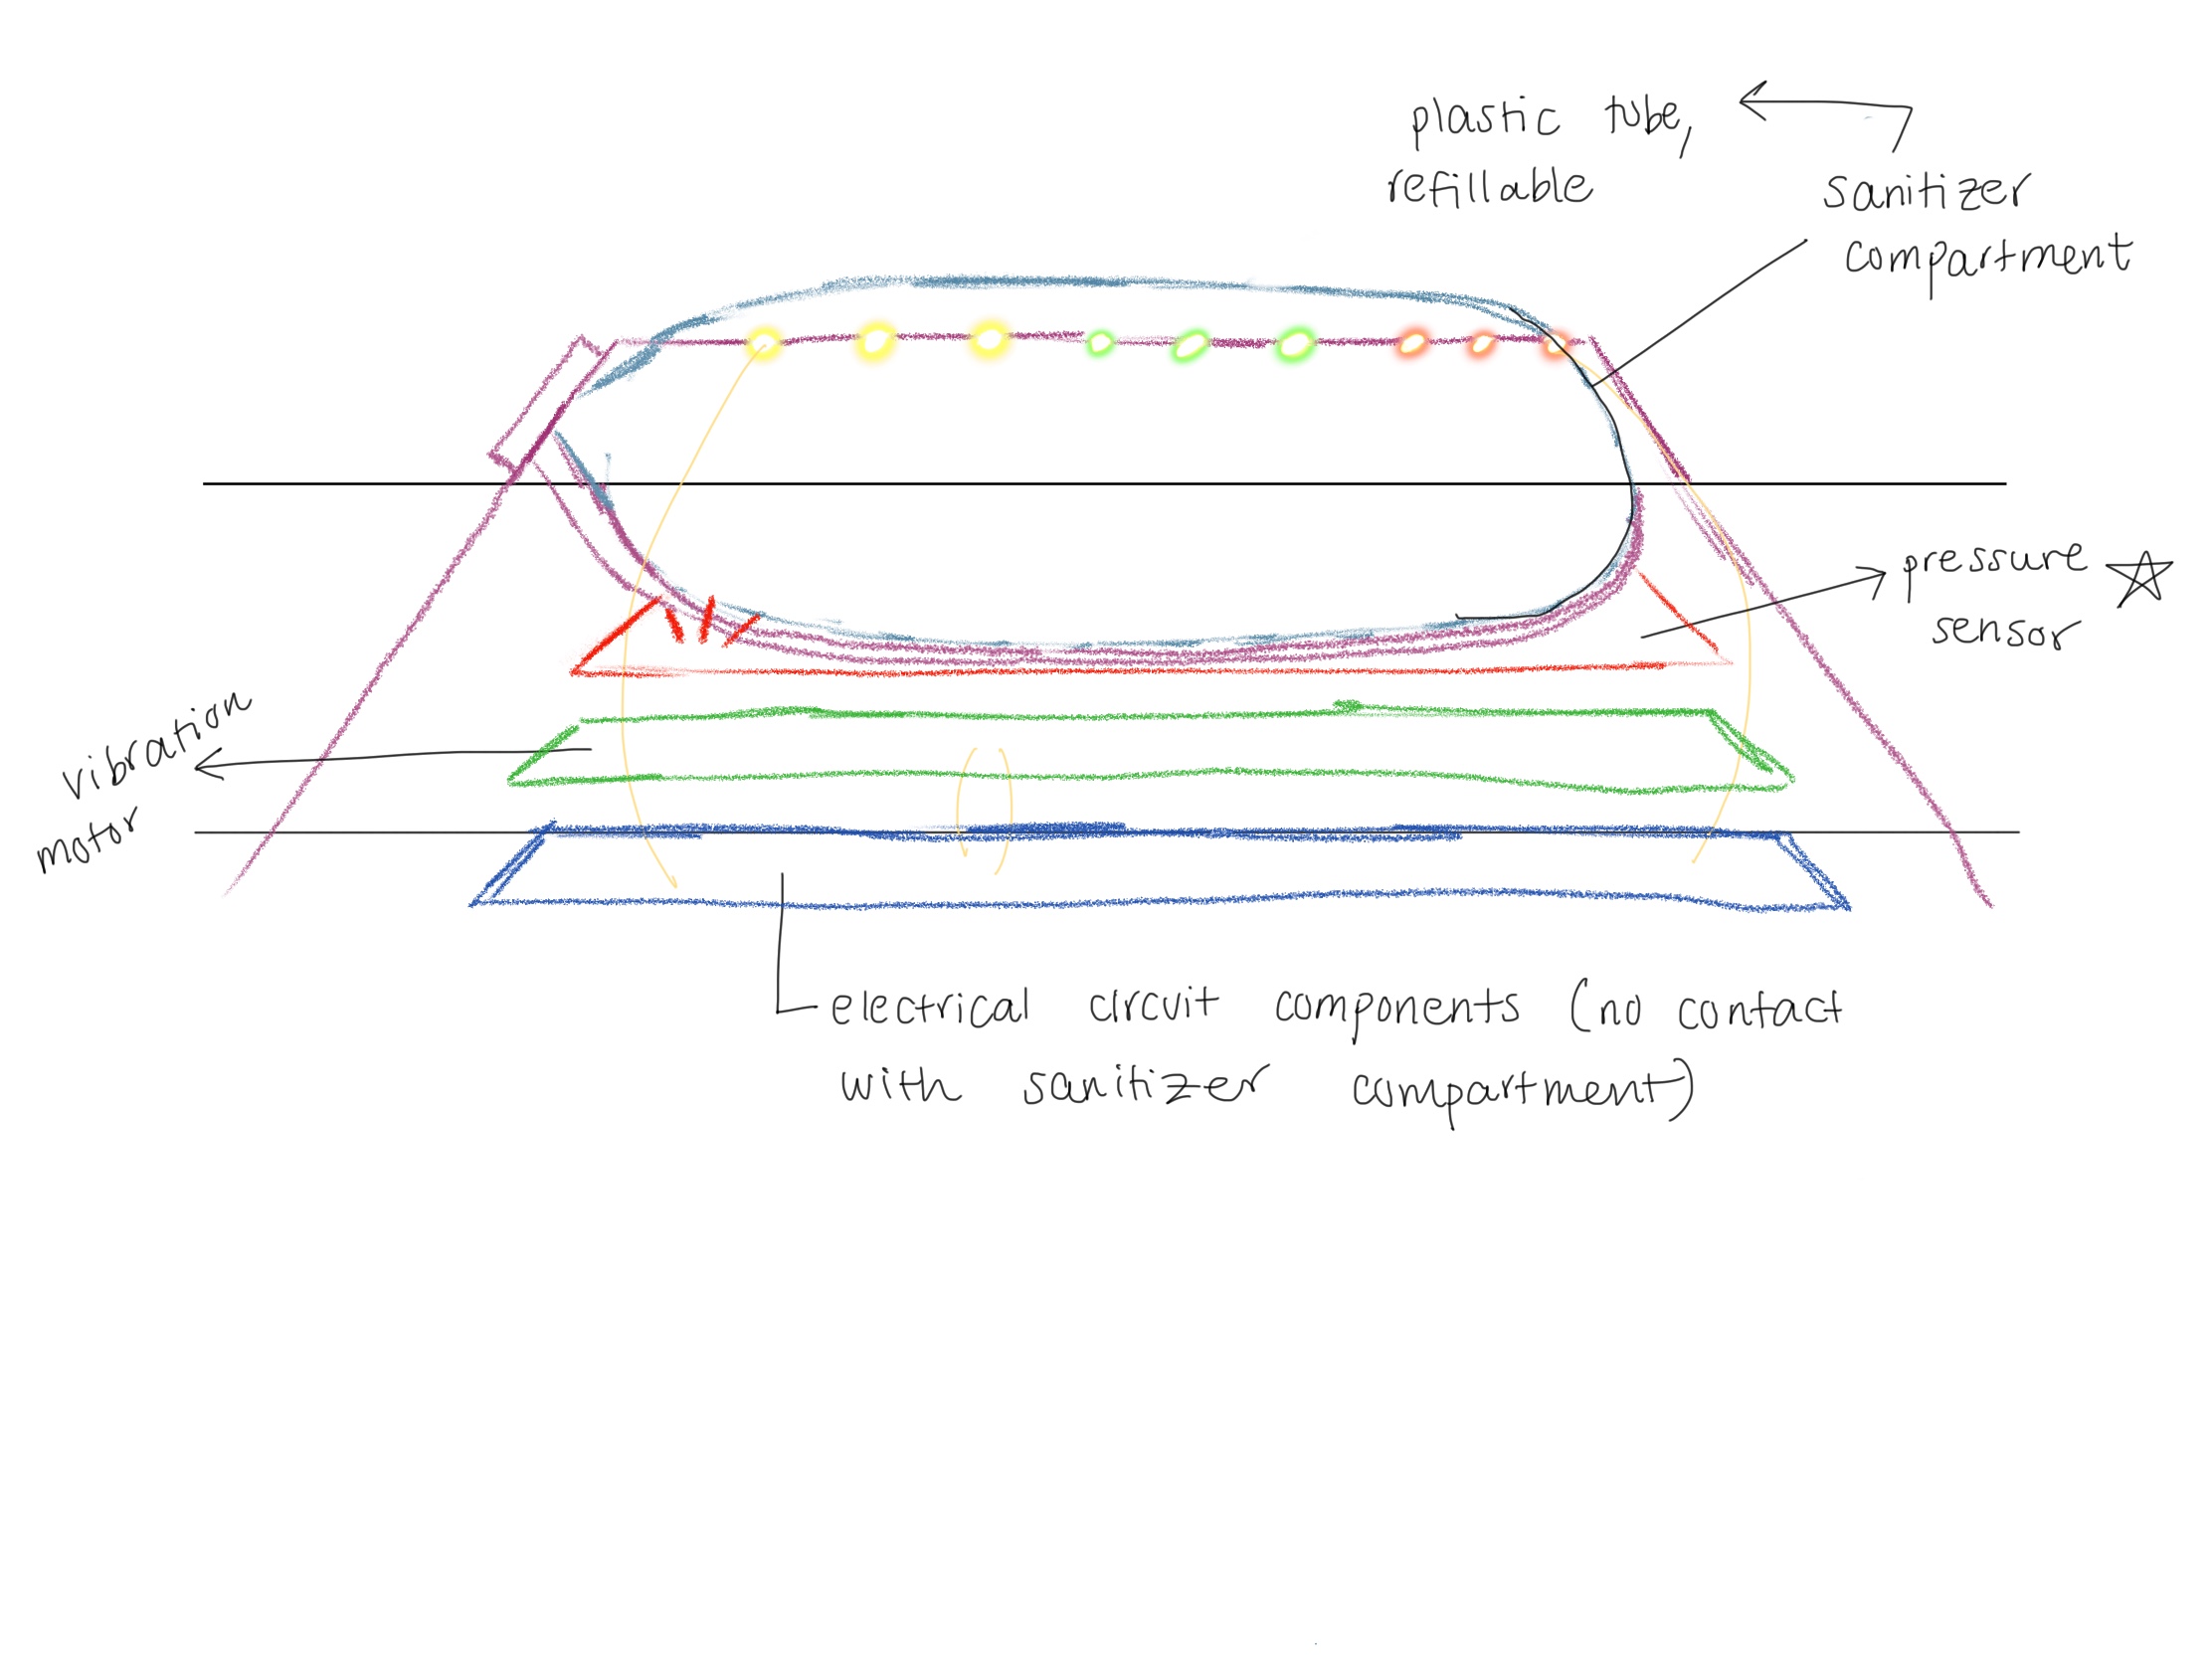 plastic tube,
refillable
sanitizer
compartment
pressure
sensor
vibration
motor
electrical circuit components (no contact
with sanitizer compartment)